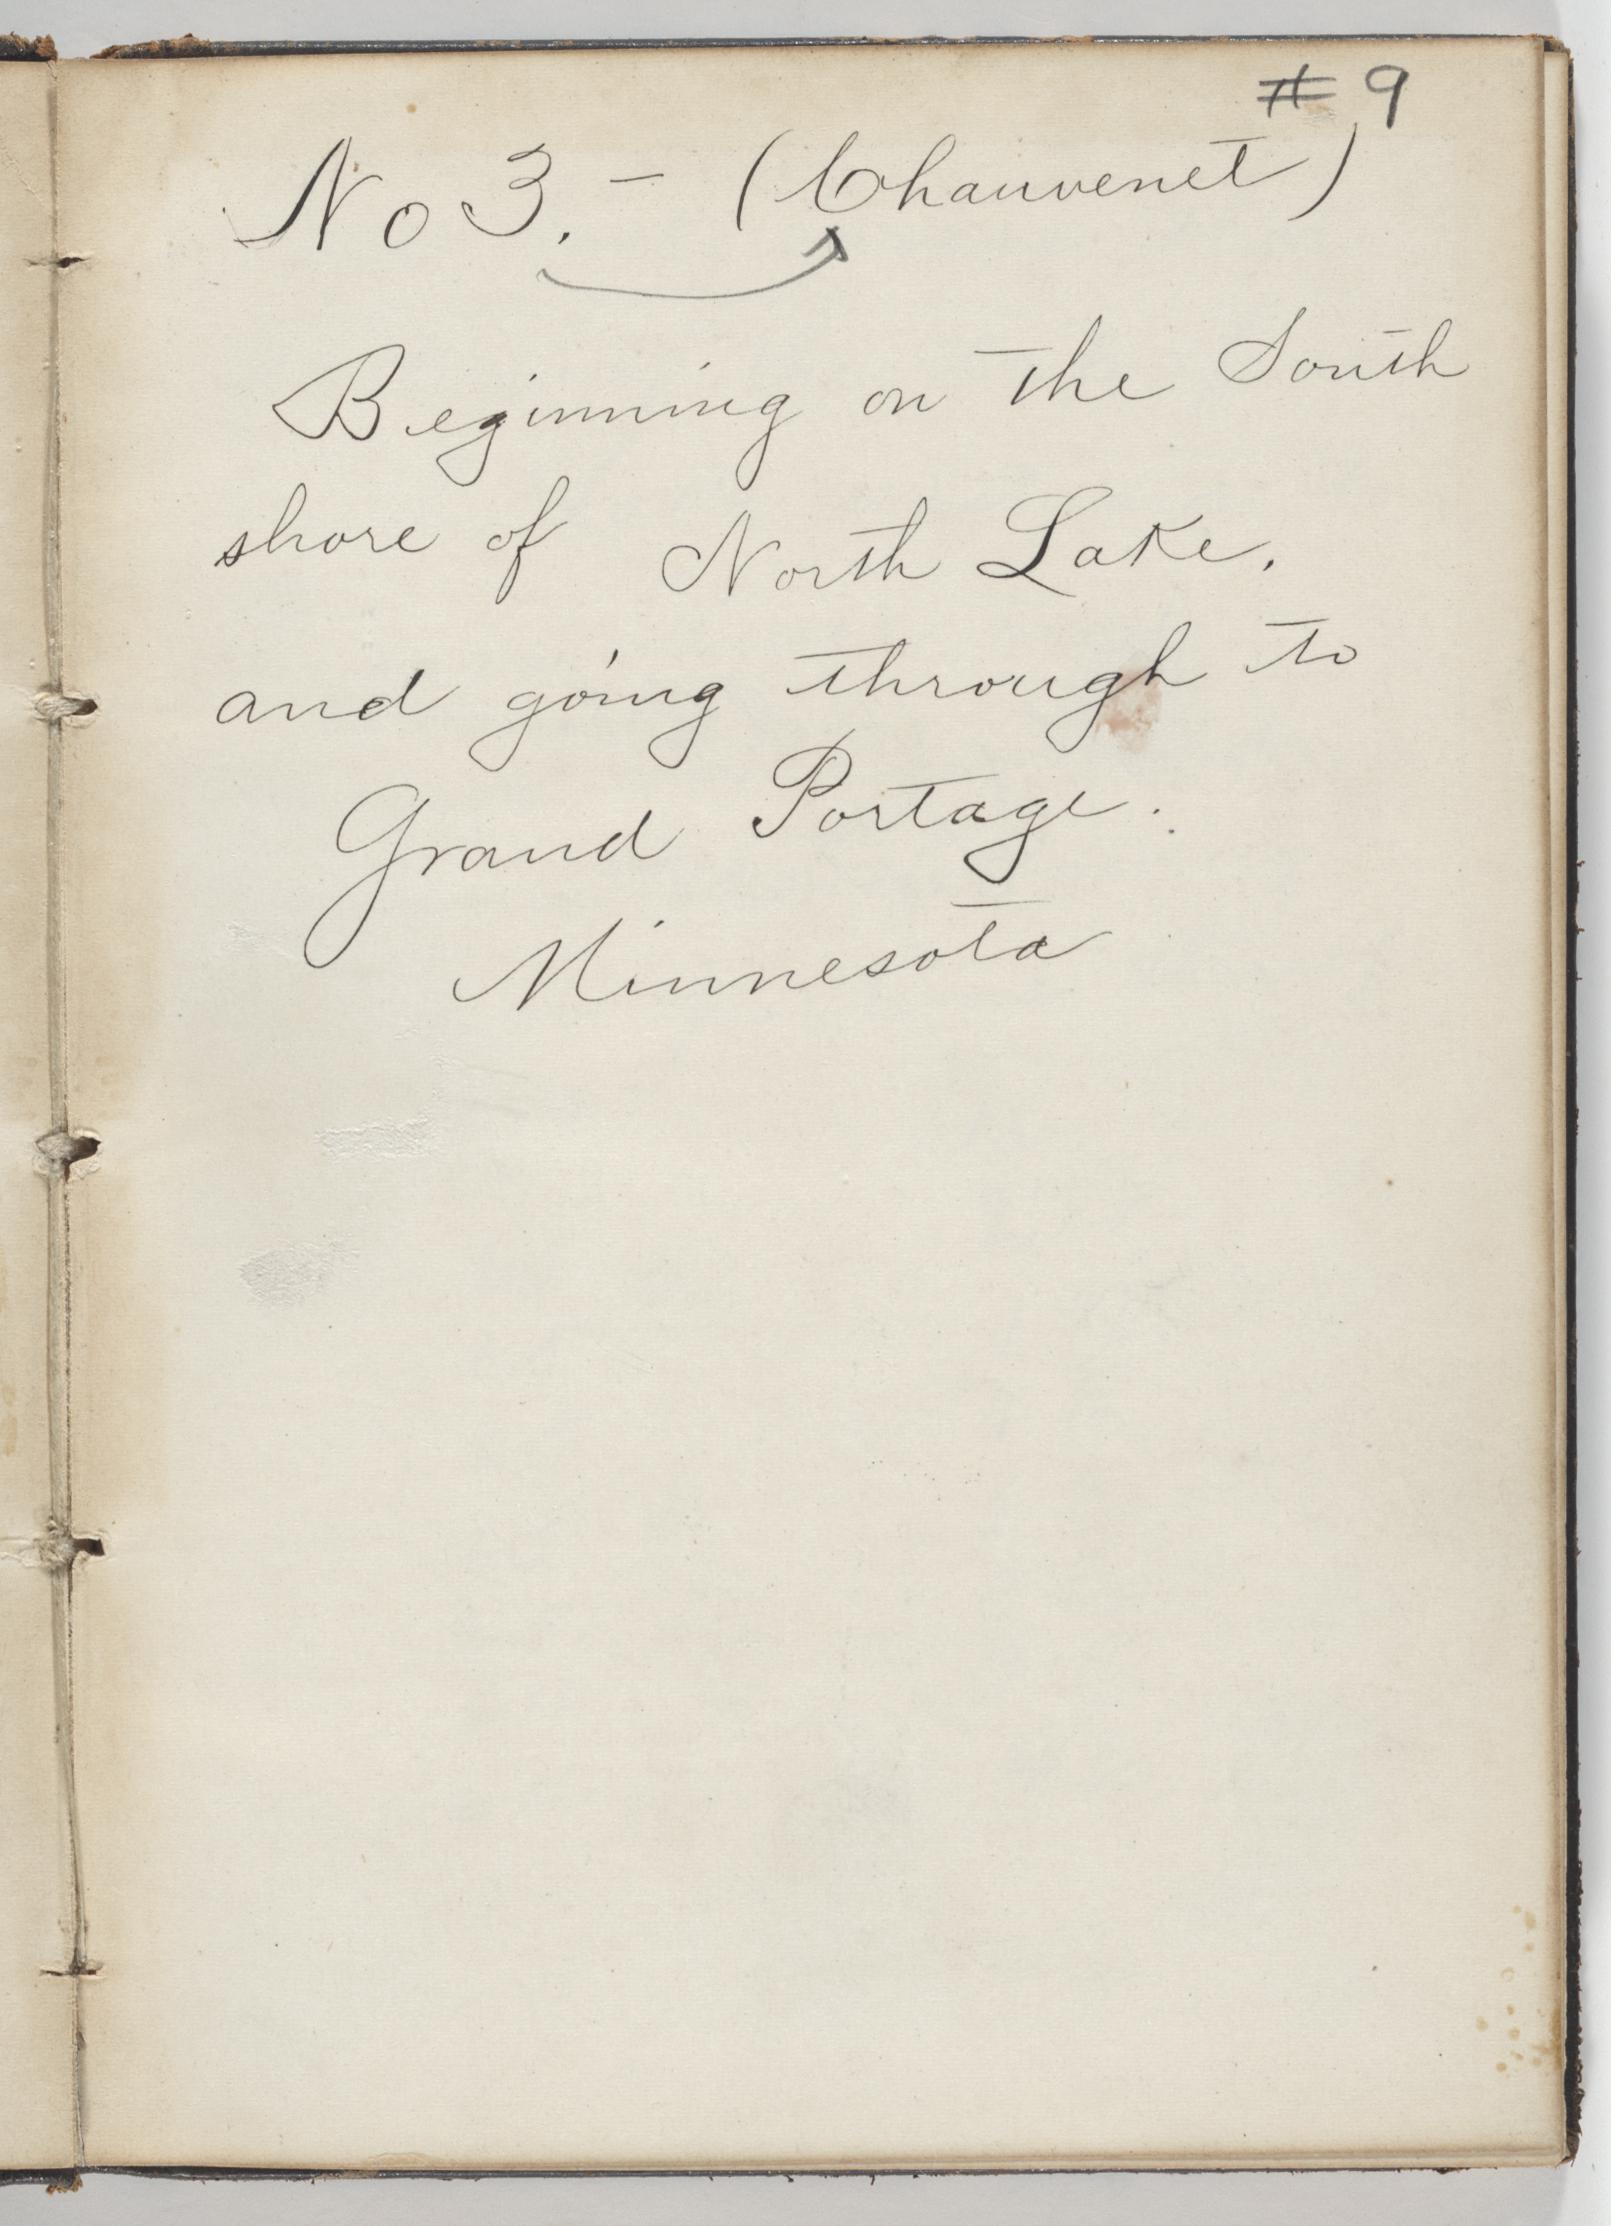 # 9
No 3. - (Chauvenet)
Beginning on the South
shore of North Lake,
and going through to
Grand Portage.
Minnesota